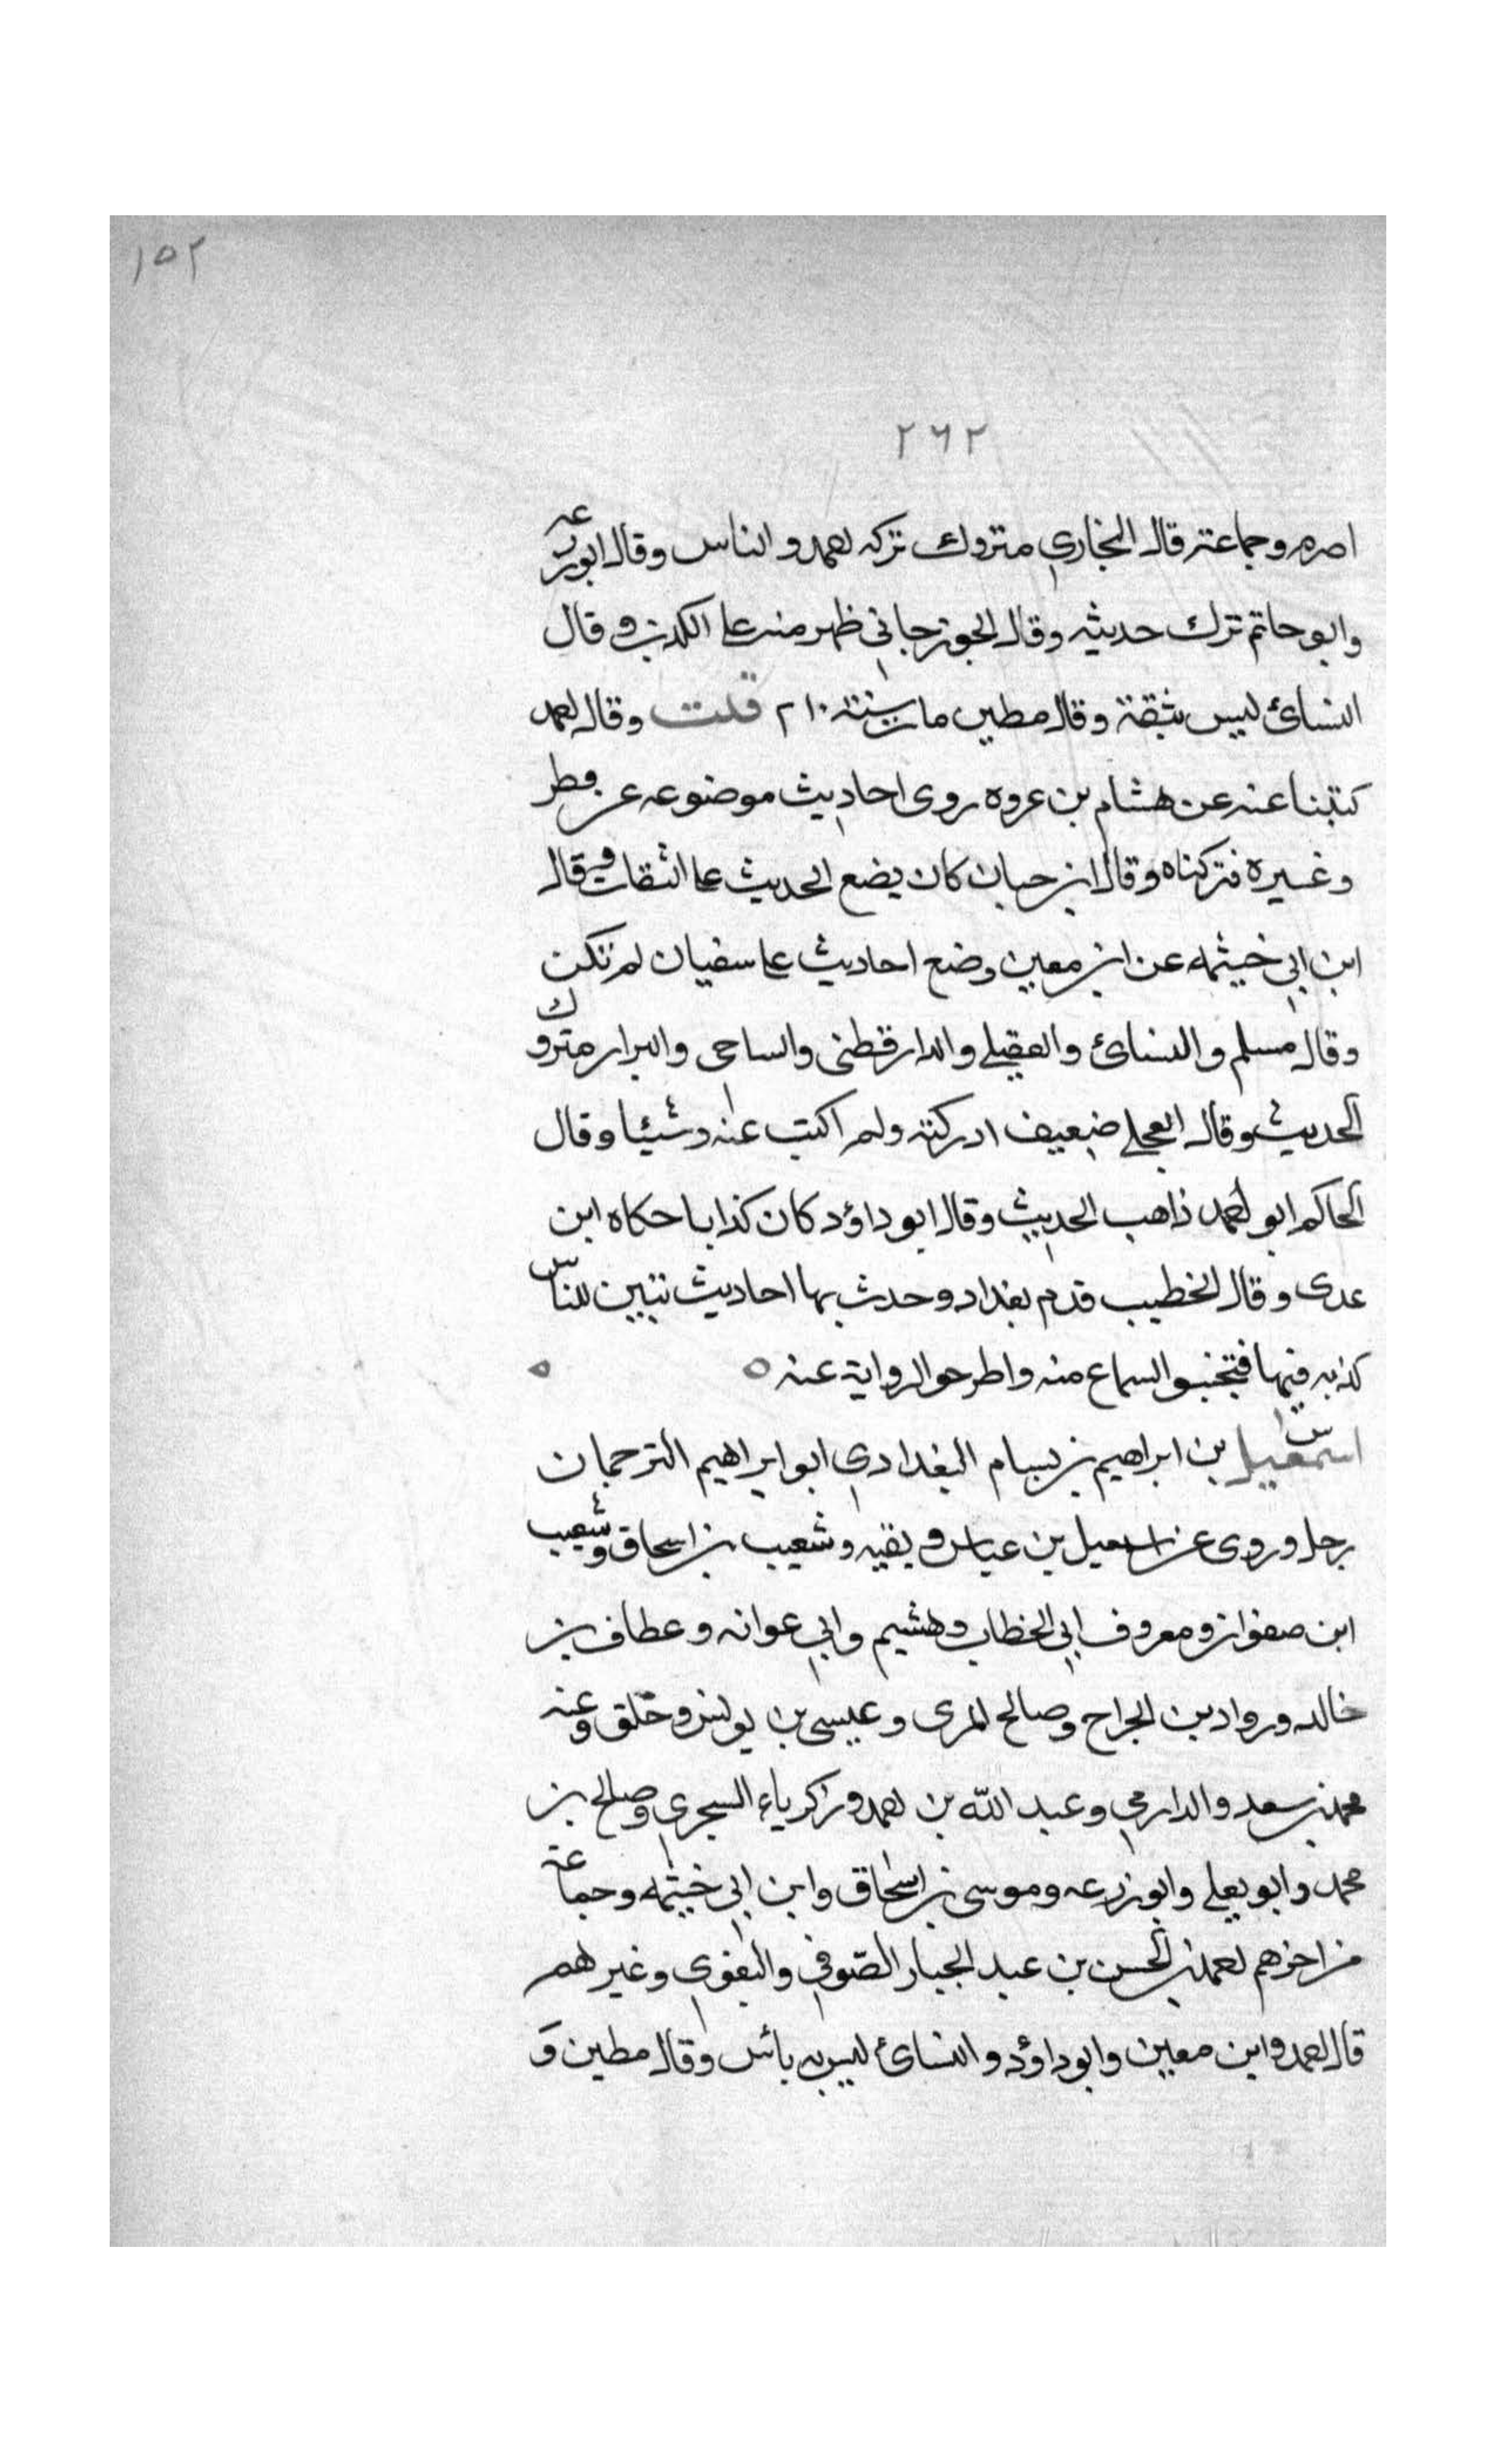 ١٥٢
٢٦٢
اصرم وجماعة قال البخاري متروك تركه احمد والناس وقال ابوزرعه
وابو حاتم ترك حديثه وقال الجوزجاني ظهر منه علي الكذب وقال
النسائ ليس بثقة وقال مطين مات سنة ٢١٠ قلت وقال احمد
كتبنا عنه عن هشام بن عروه روى احاديث موضوعه عن فطر
وغيره فتركناه وقال ابن حبان كان يضع الحديث علي الثقات وقال
ابن ابي خيثمه عن ابن معين وضع احاديث علي سفيان لم تكن
وقال مسلم والنسائ والعقيلي والدارقطنى والساجى والبزار متروك
الحديث وقال العجلي ضعيف ادركته ولم اكتب عنه شيئا وقال
الحاكم ابو احمد ذاهب الحديث وقال ابو داؤد كان كذابا حكاه ابن
عدى وقال الخطيب قدم بغداد وحدث بها احاديث تبين للناس
كذبه فيها فتجنبو السماع منه واطرحو الرواية عنه ٥ ٥
س اسمعيل بن ابراهيم بن بسام البغدادي ابو ابراهيم الترجمان
روى عن اسمعيل بن عياش وبقيه وشعيب بن اسحاق وشعيب
ابن صفوان ومعروف ابي الخطاب وهشيم وابي عوانه وعطاف بن
خالد ورواد بن الجراح وصالح المرى وعيسى بن يونس وخلق وعنه
محمد بن سعد والدارمي وعبد الله بن احمد وزكرياء السجزي وصالح بن
محمد وابو يعلي وابو زرعه وموسى بن اسحاق وابن ابي خيثمه وجماعة
من اخرهم احمد بن الحسن بن عبد الجبار الصوفي والبغوي وغيرهم
قال احمد وابن معين وابو داؤد والنسائ ليس به بائس وقال مطين و